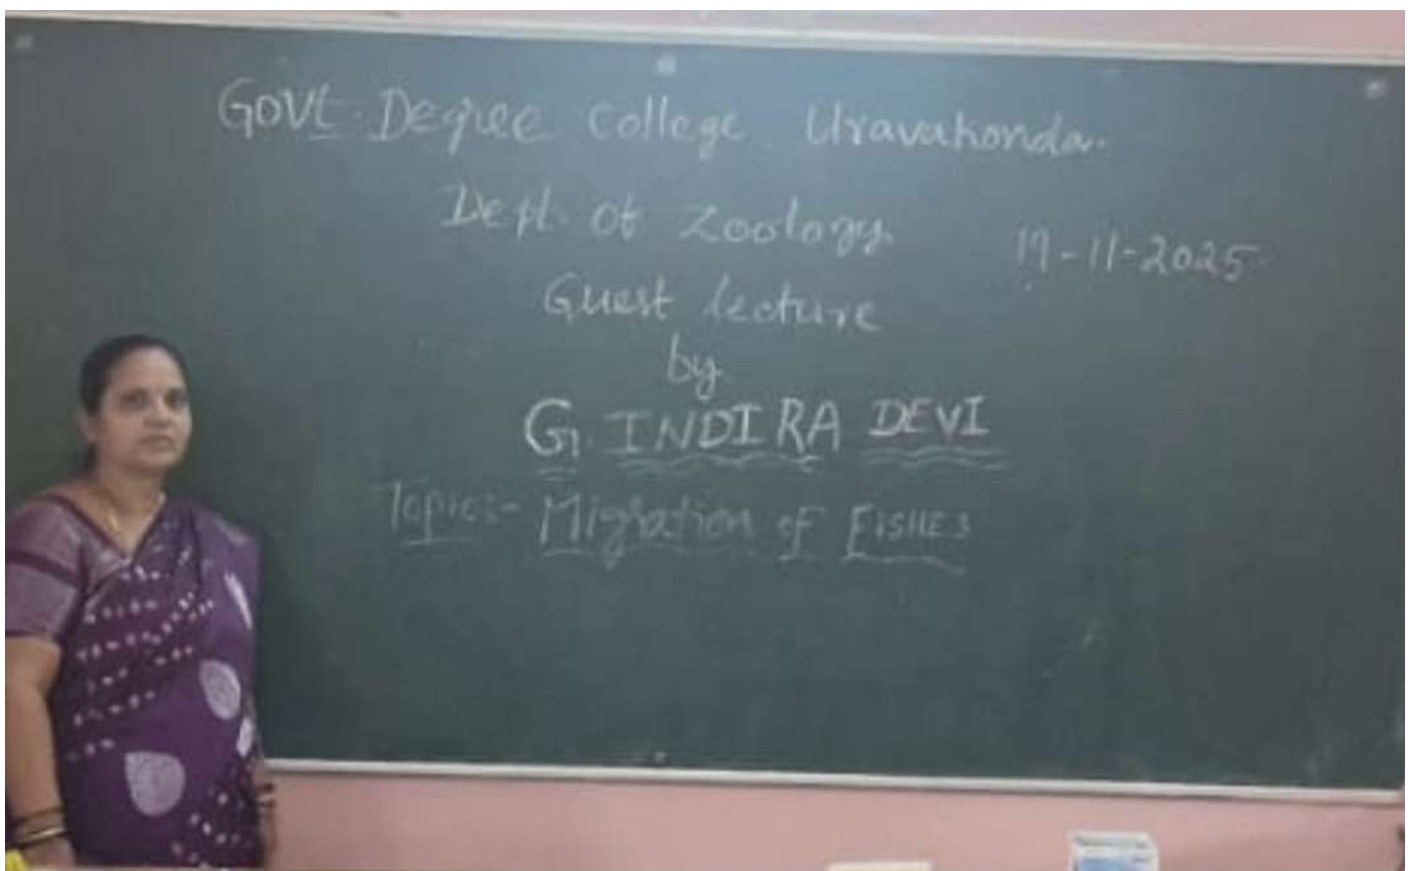 GOVt. Degree College, Uravakonda.
Dept. of Zoology.
19-11-2025
Guest lecture
by
G. INDIRA DEVI
Topic:- Migration of FISHES